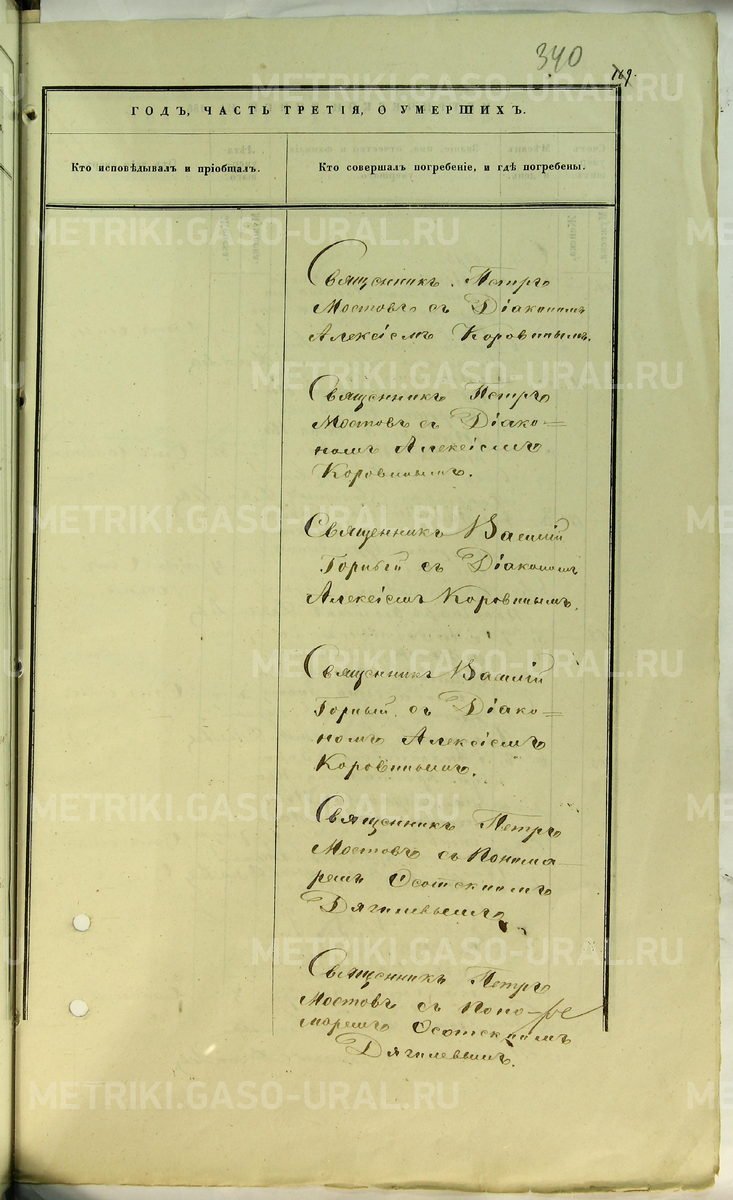 340
769.
ГОДЪ, ЧАСТЬ ТРЕТІЯ, О УМЕРШИХЪ.
Кто исповѣдывалъ и пріобщалъ.
Кто совершалъ погребеніе, и гдѣ погребены.
Священникъ Петръ
Мостовъ съ Діакономъ
Алексіемъ Коровинымъ.
Священникъ Петръ
Мостовъ съ Діако=
номъ Алексіемъ
Коровинымъ.
Священникъ Василій
Горный съ Діакономъ
Алексіемъ Коровинымъ.
Священникъ Василій
Горный съ Діако=
номъ Алексіемъ
Коровинымъ.
Священникъ Петръ
Мостовъ съ Понома
ремъ
Дягилевымъ
Священникъ Петръ
Мостовъ съ Поно-
маремъ
Дягилевымъ.
METRIKI.GASO-URAL.RU